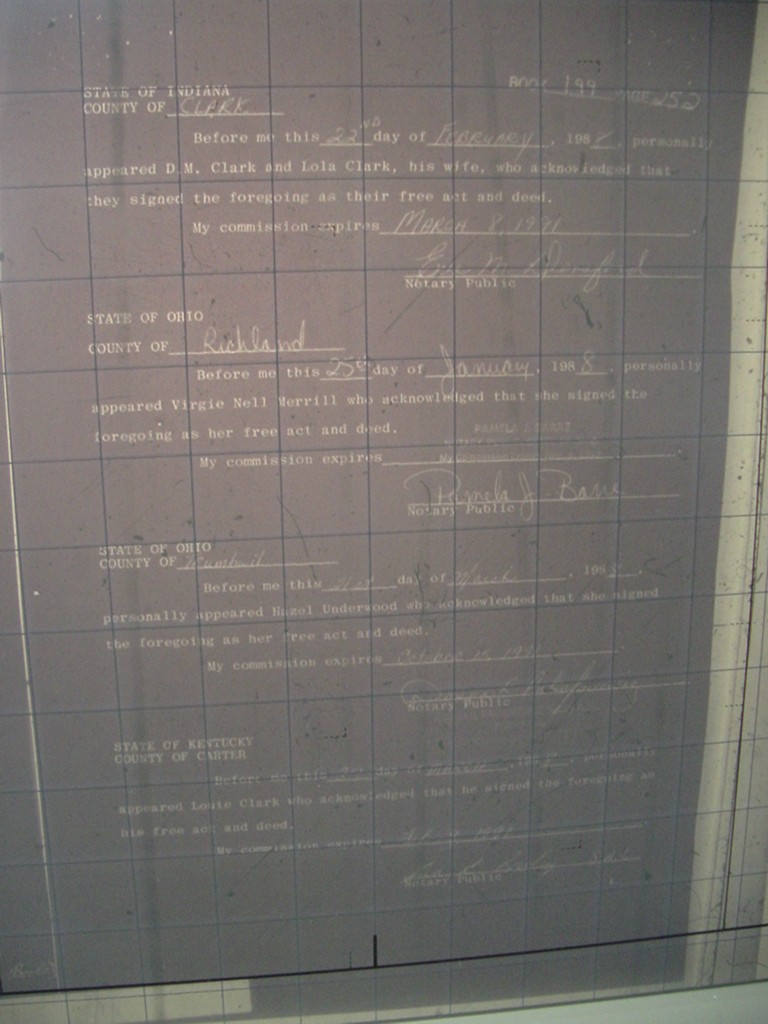 BOOK 199 PAGE 252
STATE OF INDIANA
COUNTY OF CLARK
Before me this 22ND day of FEBRUARY, 1988, personally
appeared D.M. Clark and Lola Clark, his wife, who acknowledged that
they signed the foregoing as their free act and deed.
My commission expires MARCH 8, 1991.
Notary Public
STATE OF OHIO
COUNTY OF Richland
Before me this 25th day of January, 1988, personally
appeared Virgie Nell Merrill who acknowledged that she signed the
foregoing as her free act and deed.
PAMELA J BARRE
My commission expires
Pamela J Barre
Notary Public
STATE OF OHIO
COUNTY OF
Before me this day of March, 198
personally appeared Hazel Underwood who acknowledged that she signed
the foregoing as her free act and deed.
My commission expires October 15, 1991.
Notary Public
STATE OF KENTUCKY
COUNTY OF CARTER
Before me this day of March, personally
appeared Louie Clark who acknowledged that he signed the foregoing as
his free act and deed.
My commission expires
Notary Public